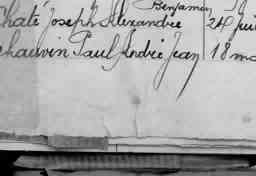 Benjamin
Chaté Joseph Alexandre 24 Jui
Chauvin Paul André Jean 18 ma